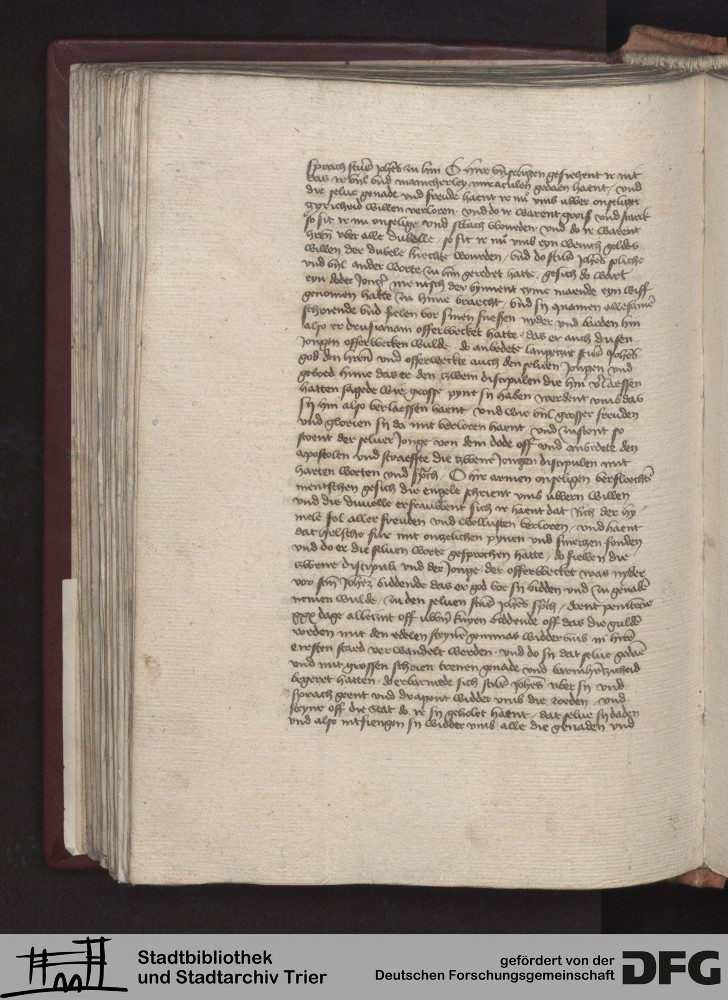 sprach sent Johes zu him O ihr unseligen gesehent ir nit
das ir vil und mancherley miraculen gedaen haent / und
die selve genade und freude haent ir nu umb uwer onseliger
gyricheid willen verloren und do ir warent groiß und starck
so sit ir nu onselige und swach worden und do ir warent
hren uber alle duvelle so sit ir nu umb eyn wenich goldes
willen der duvele knechte worden / und do sent Johes soliche
und vil ander worte zu him geredet hatte / gesich do wart
eyn doder Jong der bynnent eyme maende eyn wiff
genomen hatte zu hime braecht / und sy quamen allesame
schrienende und fielen vor sinen fuessen nyder und baeden him
also er drusianam offerwecket hatte das er auch dusen
Jongen offerwecken wulde do anbedete sent Johes
god den hren und offerweckte auch den selven Jongen und
geboed hime das er den zwein discipulen die him verlaessen
hatten sagede wie grosse pyne sy haben werdent umb das
sy him also verlaessen haent und wie vil grosser freuden
und glorien sy da mit verloren haent und zustont so
stoent der selver Jonge von dem dode off und anbedete den
apostolen und straeffte die zwene Jongen discipulen mit
harten worten und sprach O ihr armen onseligen verfloechte
mentschen gesich die engele schrient umb uwern willen
und die duvelle erfrauwent sich ir haent dat rich der hy
mele fol aller freuden und wollusten verloren / und haent
dat helsche fure mit onzelichen pynen und smerzen fonden
und do er die selven worte gesprochen hatte / do fiellen die
zwene discipuli und der Jonge der offerwecket was nyder
vor sent Johez biddende das er god vor sy bidden und zu genaden
nemen wulde / zu den selven sent Johes sprach / doent penitecie
xxx dage allticht off uwern knyen biddende off das die gulden
roeden mit den edelen steynen gemmas widderumb in hren
ersten staed verwandelt werden und do sy dat selve gedaen
und mit grossen schrien trenen genade und barmhertzicheid
begeret hatten do erbarmede sich sent Johes uber sy und
sprach geent und dragent widder umb die roeden und
steyne off die stat do ir sy geholet haent / dat selve sy daden
und also intfiengen sy widder umb alle die genaden und
Stadtbibliothek
und Stadtarchiv Trier
gefördert von der
Deutschen Forschungsgemeinschaft
DFG